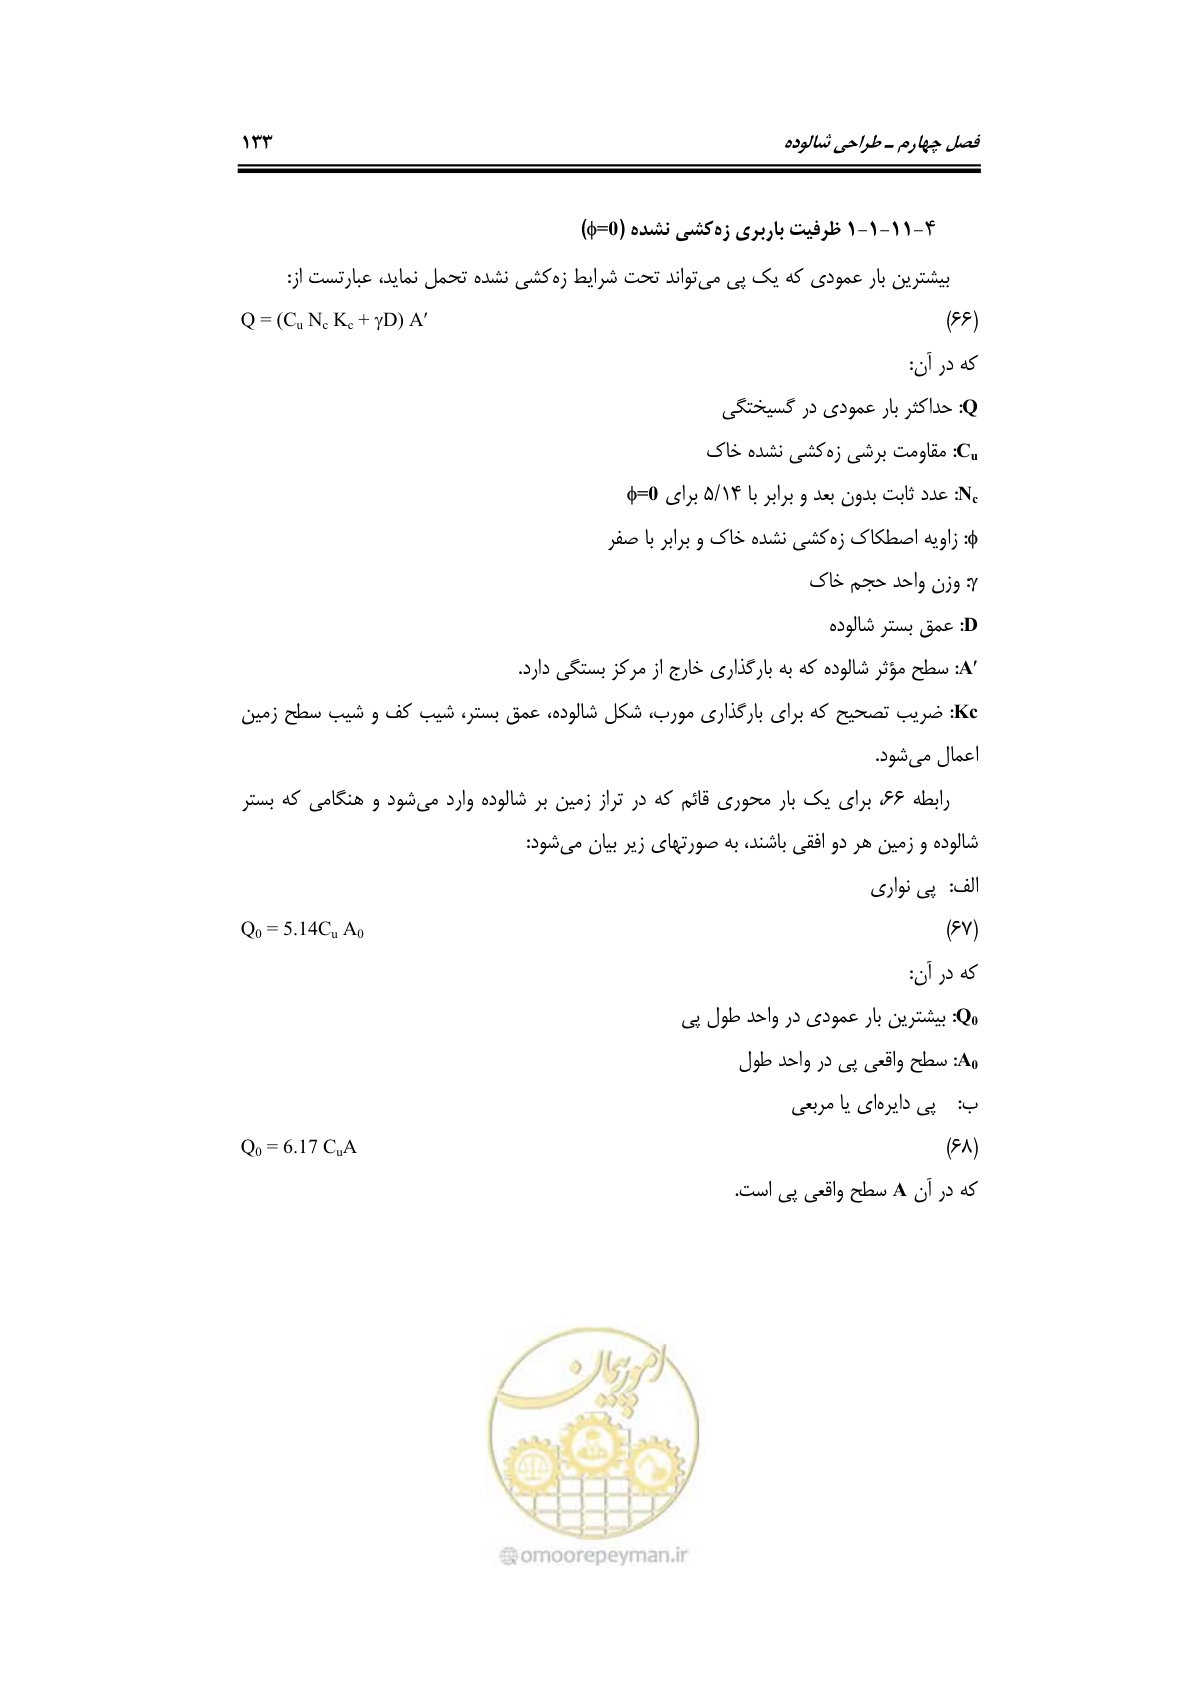 فصل چهارم ـ طراحی شالوده ۱۳۳
۴-۱۱-۱-۱ ظرفیت باربری زه‌کشی نشده (ϕ=0)
بیشترین بار عمودی که یک پی می‌تواند تحت شرایط زه‌کشی نشده تحمل نماید، عبارتست از:
(۶۶) Q = (Cu Nc Kc + γD) A′
که در آن:
Q: حداکثر بار عمودی در گسیختگی
Cu: مقاومت برشی زه‌کشی نشده خاک
Nc: عدد ثابت بدون بعد و برابر با ۵/۱۴ برای ϕ=0
ϕ: زاویه اصطکاک زه‌کشی نشده خاک و برابر با صفر
γ: وزن واحد حجم خاک
D: عمق بستر شالوده
A′: سطح مؤثر شالوده که به بارگذاری خارج از مرکز بستگی دارد.
Kc: ضریب تصحیح که برای بارگذاری مورب، شکل شالوده، عمق بستر، شیب کف و شیب سطح زمین
اعمال می‌شود.
رابطه ۶۶، برای یک بار محوری قائم که در تراز زمین بر شالوده وارد می‌شود و هنگامی که بستر
شالوده و زمین هر دو افقی باشند، به صورتهای زیر بیان می‌شود:
الف: پی نواری
(۶۷) Q0 = 5.14Cu A0
که در آن:
Q0: بیشترین بار عمودی در واحد طول پی
A0: سطح واقعی پی در واحد طول
ب: پی دایره‌ای یا مربعی
(۶۸) Q0 = 6.17 CuA
که در آن A سطح واقعی پی است.
امور پیمان
@omoorepeyman.ir